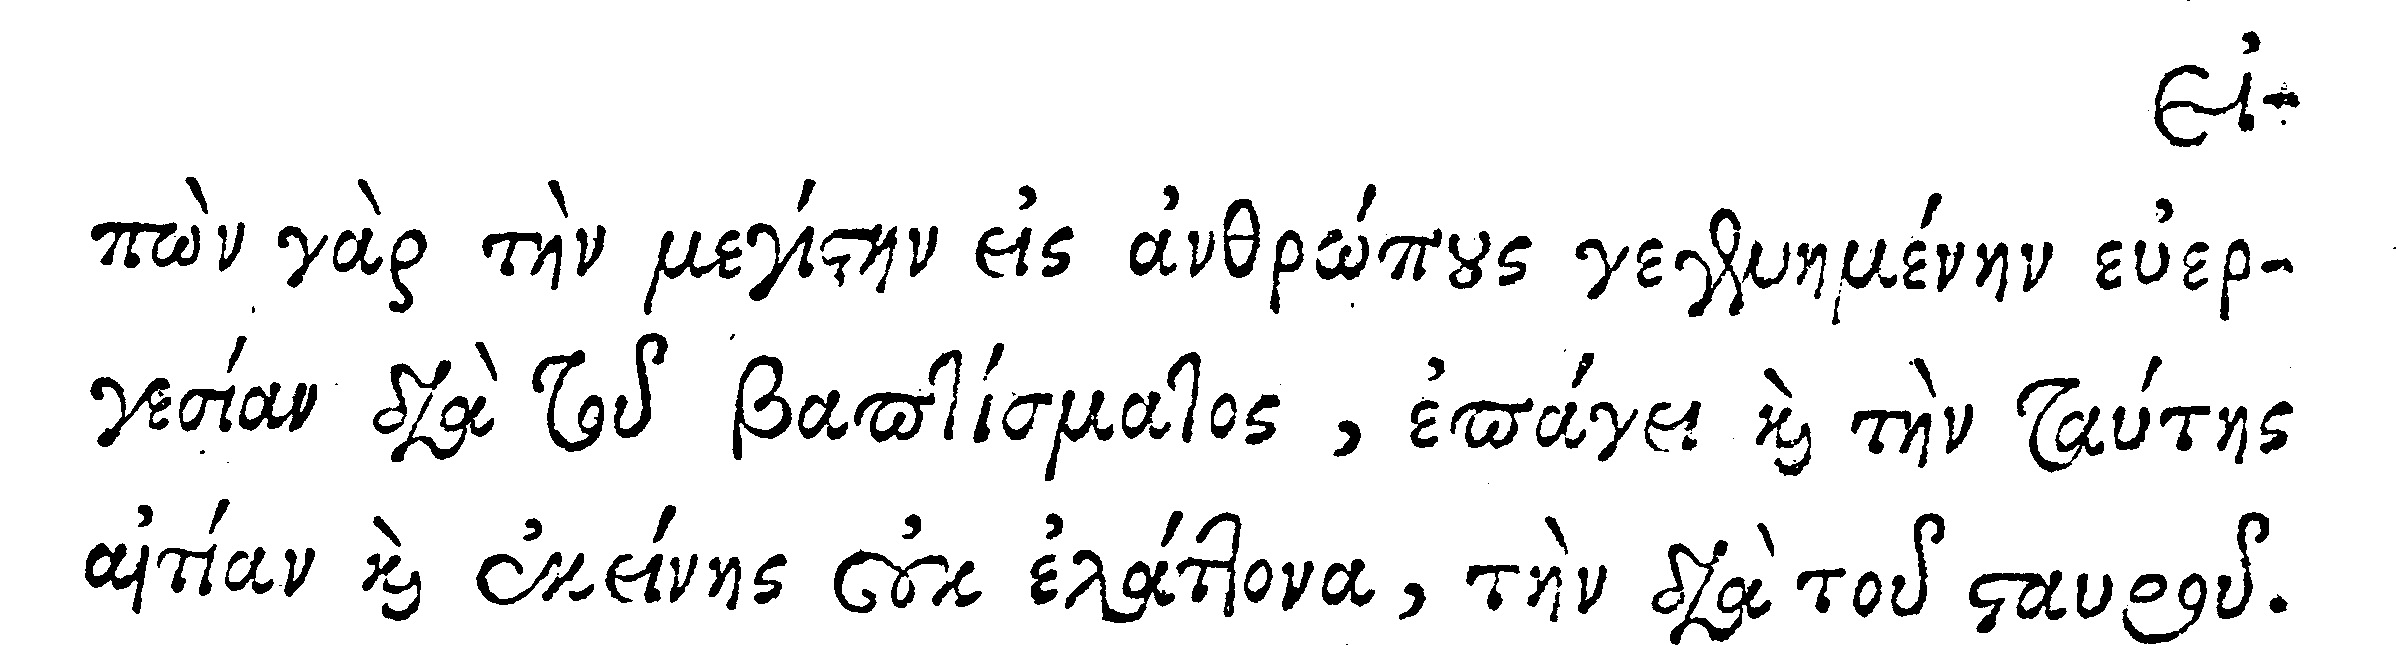 εἰ-
πὼν γὰρ τὴν μεγίστην εἰς ἀνθρώπους γεγενημένην εὐερ-
γεσίαν διὰ τοῦ βαπτίσματος, ἐπάγει καὶ τὴν ταύτης
αἰτίαν καὶ ἐκείνης οὐκ ἐλάττονα, τὴν διὰ τοῦ σταυροῦ.